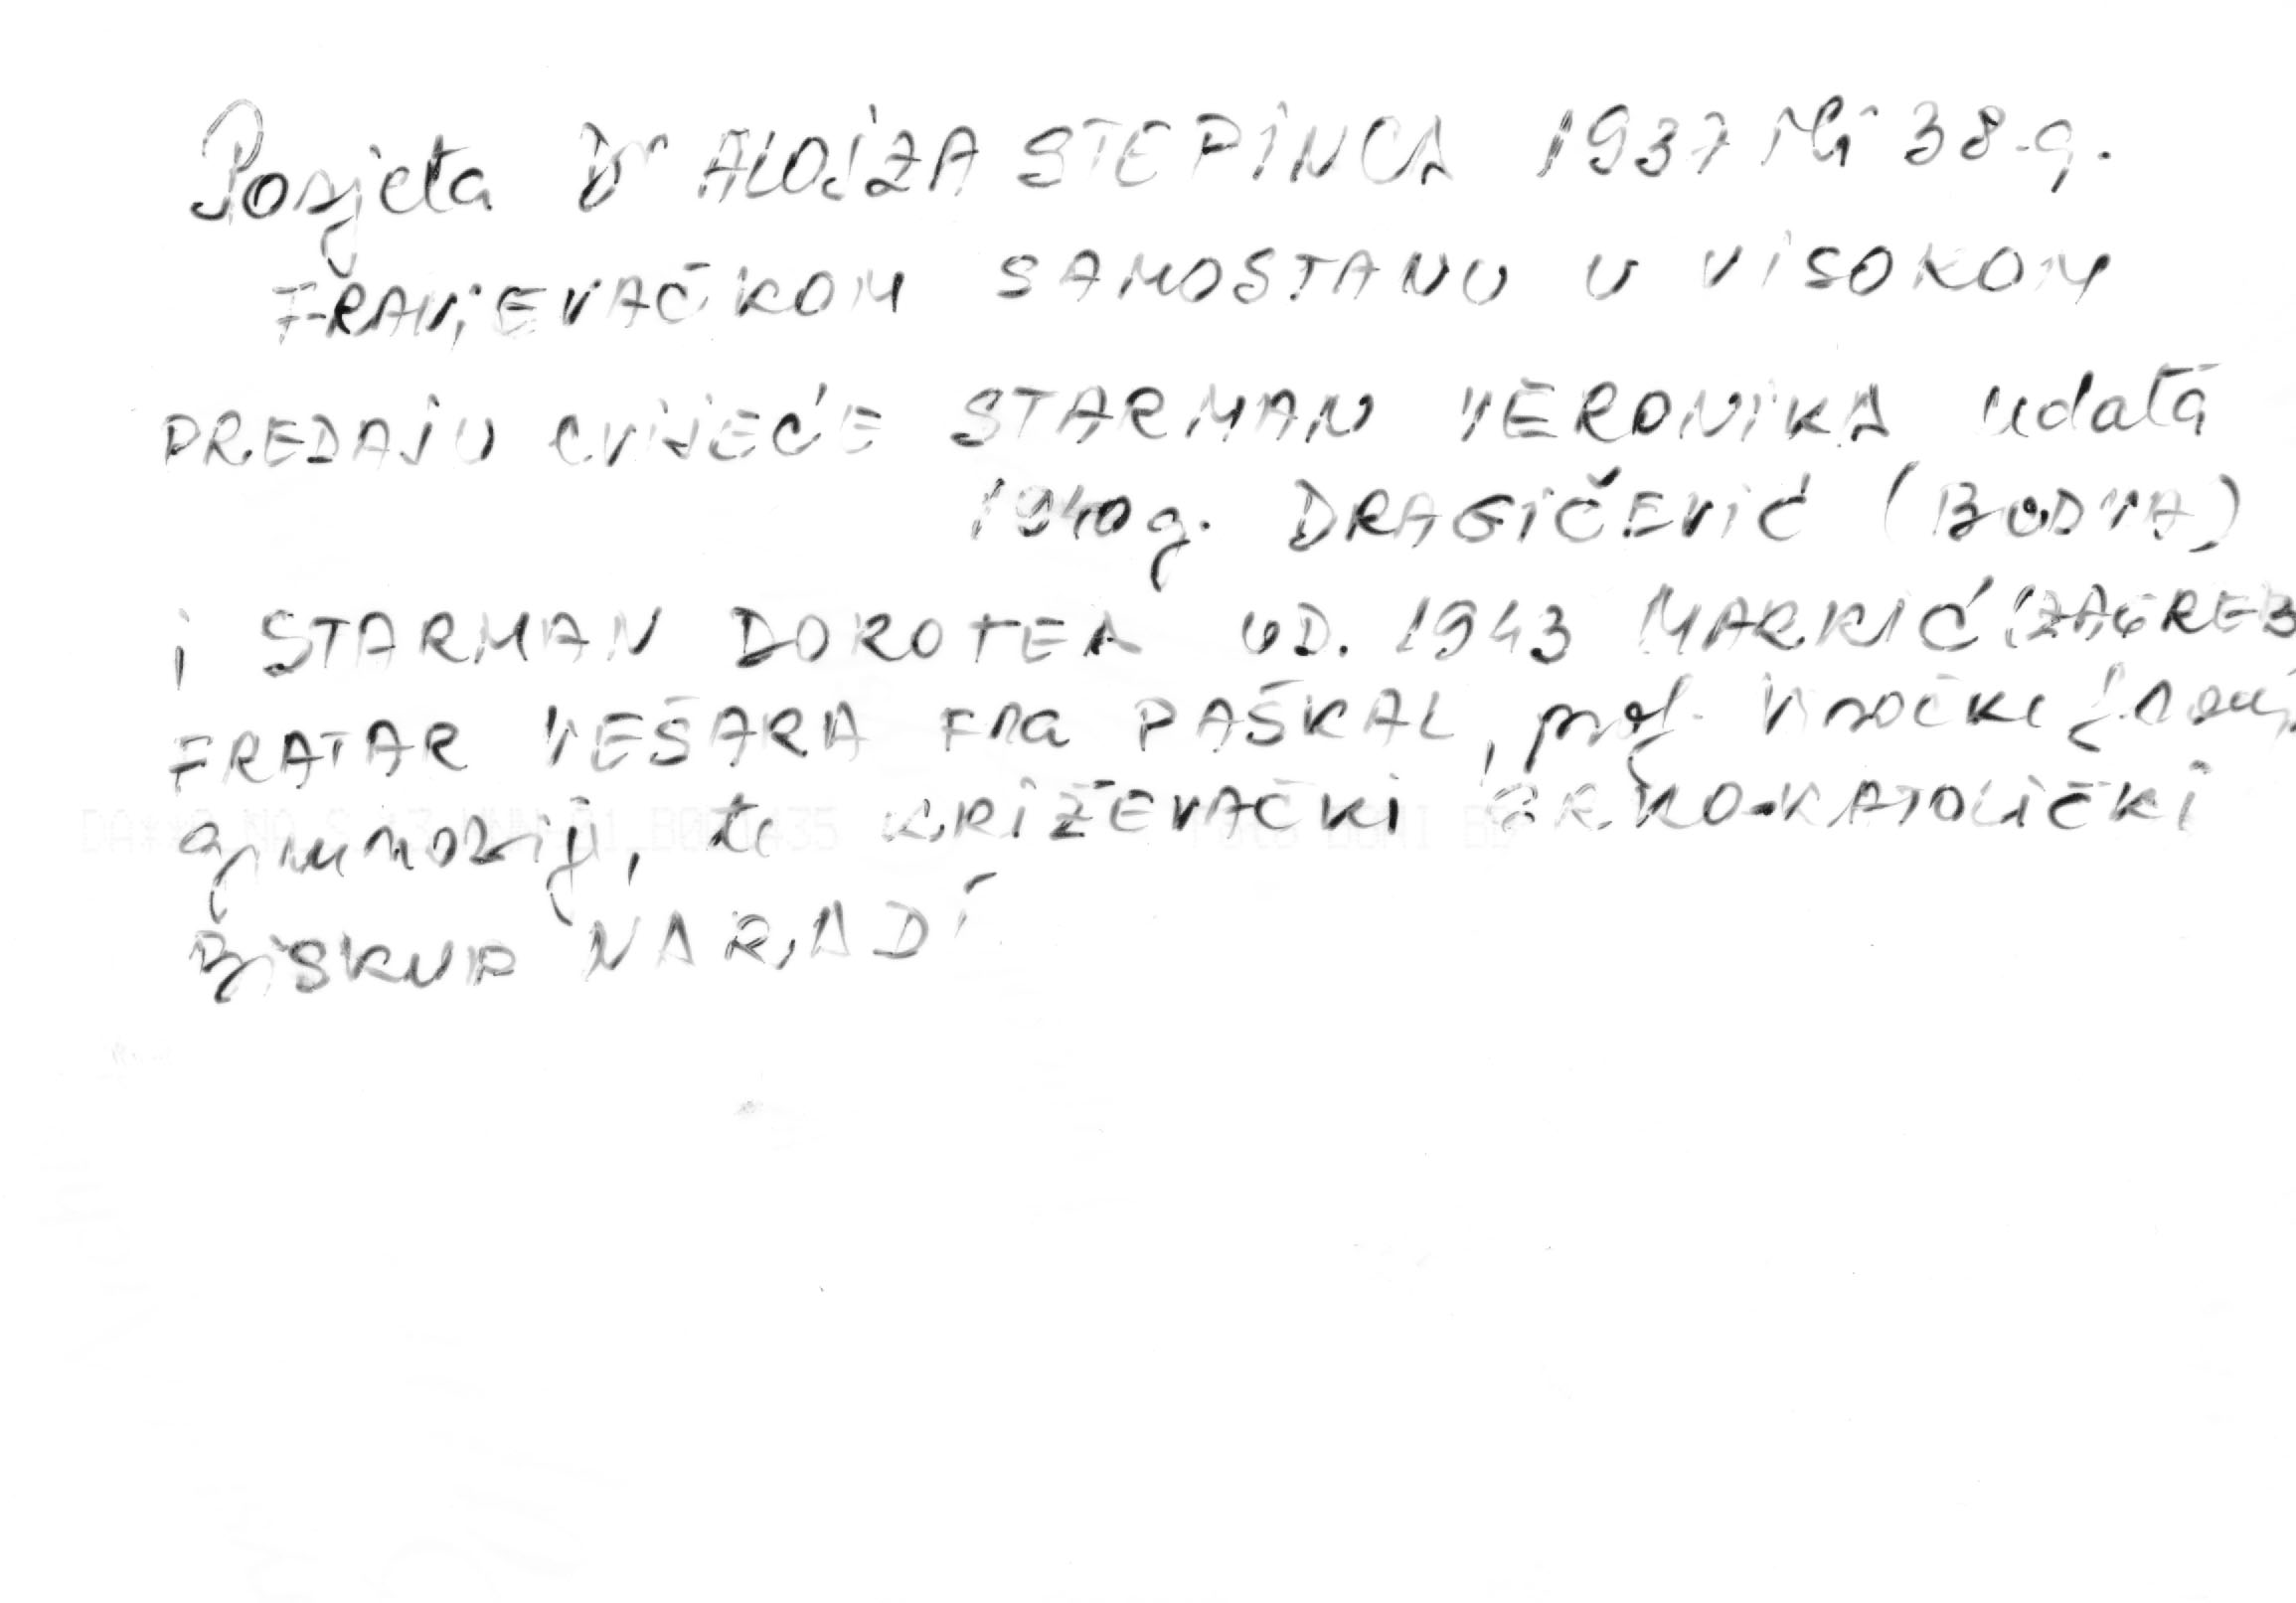 Posjeta Dr ALOJZA STEPINCA 1937 ili 38.g.
FRANJEVAČKOM SAMOSTANU U VISOKOM
PREDAJU CVIJEĆE STARMAN VERONIKA udata
1940g. DRAGIČEVIĆ (BUDVA)
i STARMAN DOROTEA UD. 1943 MARKIĆ (ZAGREB
FRATAR VEŠARA Fra PAŠKAL, prof. Visočke
gimnazij, te KRIŽEVAČKI GRKO-KATOLIČKI
BISKUP NARADI